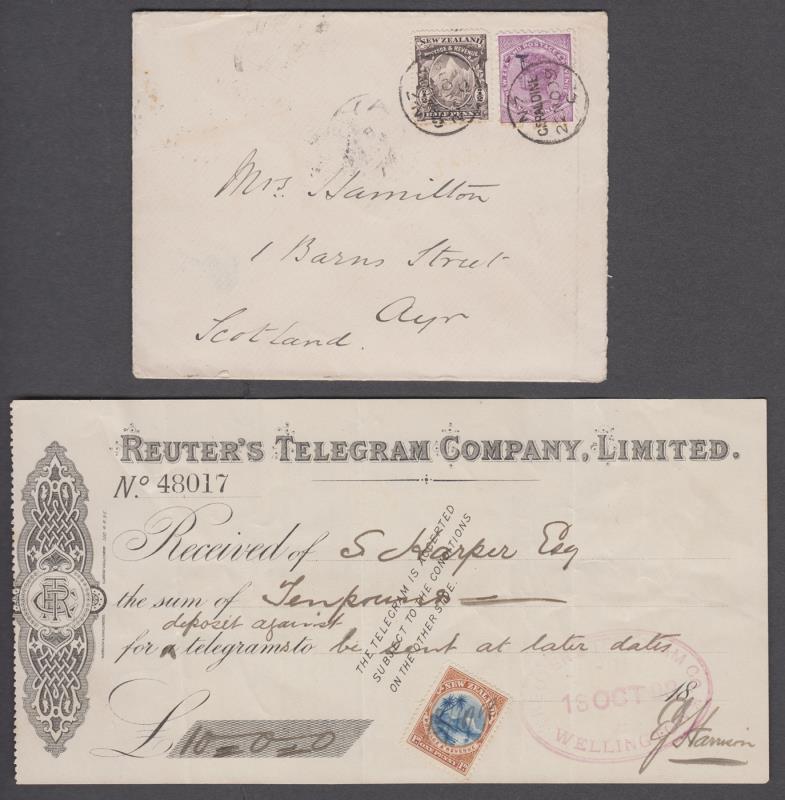 NEW ZEALAND
POSTAGE & REVENUE
HALF PENNY
NZ
GERALDINE
22 NO 9
Mrs. Hamilton
1 Barns Street
Ayr
Scotland.
REUTER'S TELEGRAM COMPANY, LIMITED.
No. 48017
Received of S Harper Esq
the sum of Ten pounds
deposit against
for a telegrams to be sent at later dates
THE TELEGRAM IS ACCEPTED
SUBJECT TO THE CONDITIONS
ON THE OTHER SIDE.
18
18 OCT
WELLING
£ 10-0-0
NEW ZEALAND
ONE PENNY
J Harrison